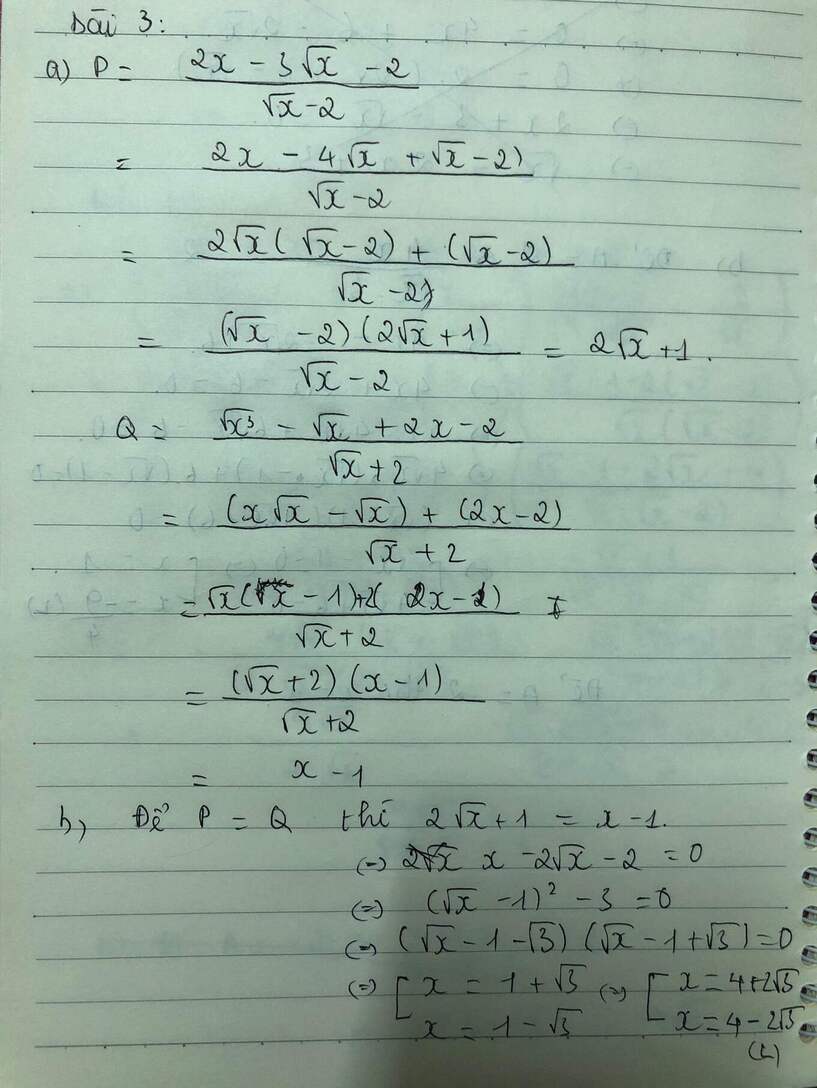 Bài 3:
a) P = (2x - 3√x - 2)/(√x - 2)
= (2x - 4√x + √x - 2))/(√x - 2)
= (2√x(√x - 2) + (√x - 2))/(√x - 2)
= ((√x - 2)(2√x + 1))/(√x - 2) = 2√x + 1.
Q = (√x³ - √x + 2x - 2)/(√x + 2)
= ((x√x - √x) + (2x - 2))/(√x + 2)
= (√x(x - 1) + 2(x - 1))/(√x + 2)
= ((√x + 2)(x - 1))/(√x + 2)
= x - 1
b, Để P = Q thì 2√x + 1 = x - 1.
(=) x - 2√x - 2 = 0
(=) (√x - 1)² - 3 = 0
(=) (√x - 1 - √3)(√x - 1 + √3) = 0
(=) [ x = 1 + √3 (=) [ x = 4 + 2√3
x = 1 - √3 x = 4 - 2√3
(L)